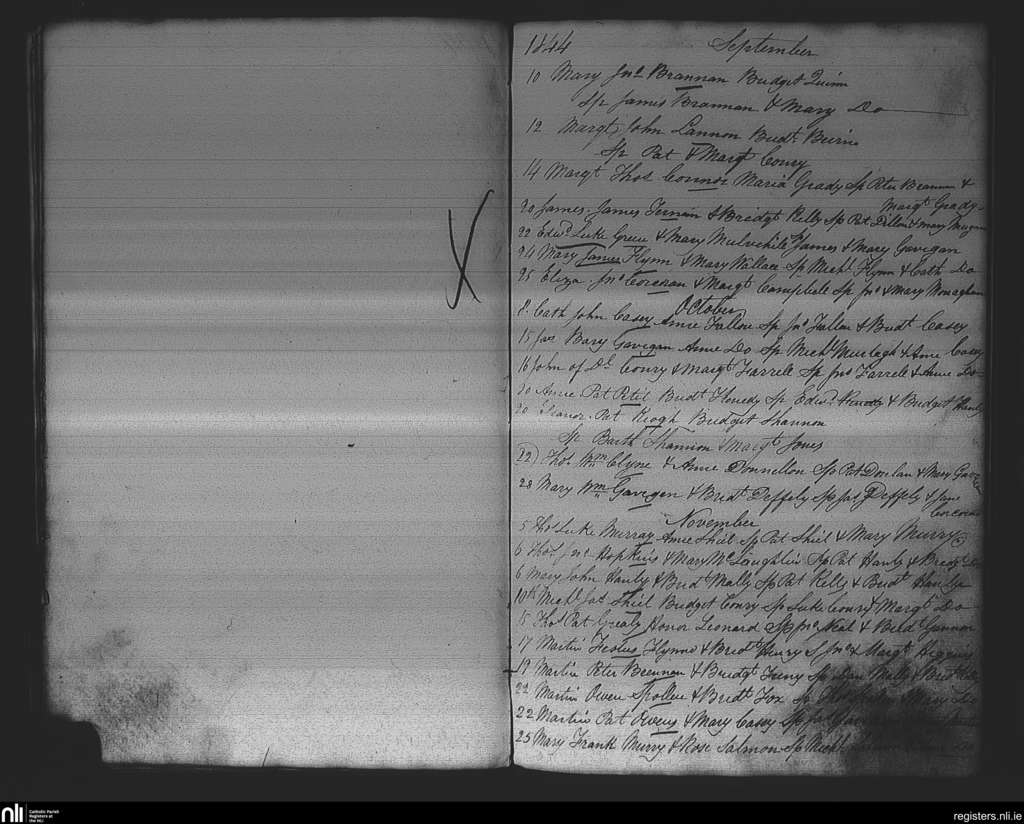 1844 September
10 Mary Jno Brannan Bridget Quinn
Sp James Brannan & Mary Do
12 Margt John Lannon Bridt Beirne
Sp Pat & Margt Conry
14 Margt Thos Connor Maria Grady Sp Peter Brannan &
Margt Grady
20 James James & Bridgt Kelly Sp Pat Dillon & Mary
22 Edwd Luke Greene & Mary Mulvihile James & Mary Gavigan
24 Mary James Flynn & Mary Wallace Sp Michl Flynn & Cath Do
25 Eliza Jno Corcoran & Margt Campbell Sp Jno & Mary Monaghan
October
8 Cath John Casey Anne Fallon Sp Jno Fallon & Bridt Casey
15 Jas Bary Gavigan Anne Do Sp Michl Murtagh & Anne Casey
16 John of Dl Conry & Margt Farrell Sp Jno Farrell & Anne Do
20 Anne Pat Petit Bridt Sp Edwd & Bridget Hanly
20 Elanor Pat Keogh Bridget Shannon
Sp Barth Shannon & Margt Jones
22) Thos Wm Clyne & Anne Donnellon Sp Pat Donlan & Mary
28 Mary Wm Gavigan & Bridt Deffely Sp Jas Deffely & Jane
Corcoran
November
5 Thos Luke Murray Anne Shiel Sp Pat Shiel & Mary Murry
6 Thos Jno Hopkins & Mary McLoughlin Sp Pat Hanly & Bridgt Do
6 Mary John Hanly & Bridt Mally Sp Pat Kelly & Bridt Hanly
10th Michl Jas Shiel Bridget Conry Sp Luke Conry & Margt Do
15 Thos Pat Grealy Honor Leonard Sp Jno Neal & Bridt Gannon
17 Martin Festus Flynne & Bridt Henry S Jno & Margt Higgins
19 Martin Peter Brennan & Bridgt Feeny Sp Dan Mally & Bridt
22 Martin Owen Spollen & Bridt Fox Sp & Mary
22 Martin Pat Owens & Mary Casey Sp Jas
25 Mary Frank Murry & Rose Salmon Sp Michl
nli Catholic Parish
Registers at
the NLI
registers.nli.ie